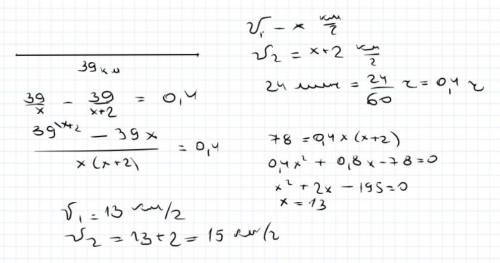 39 км
39/x - 39/(x+2) = 0,4
(39\x+2 - 39x)/(x(x+2)) = 0,4
V₁ = 13 км/г
V₂ = 13+2 = 15 км/г
V₁ - x км/г
V₂ = x+2 км/г
24 мин = 24/60 г = 0,4 г
78 = 0,4x(x+2)
0,4x² + 0,8x - 78 = 0
x² + 2x - 195 = 0
x = 13